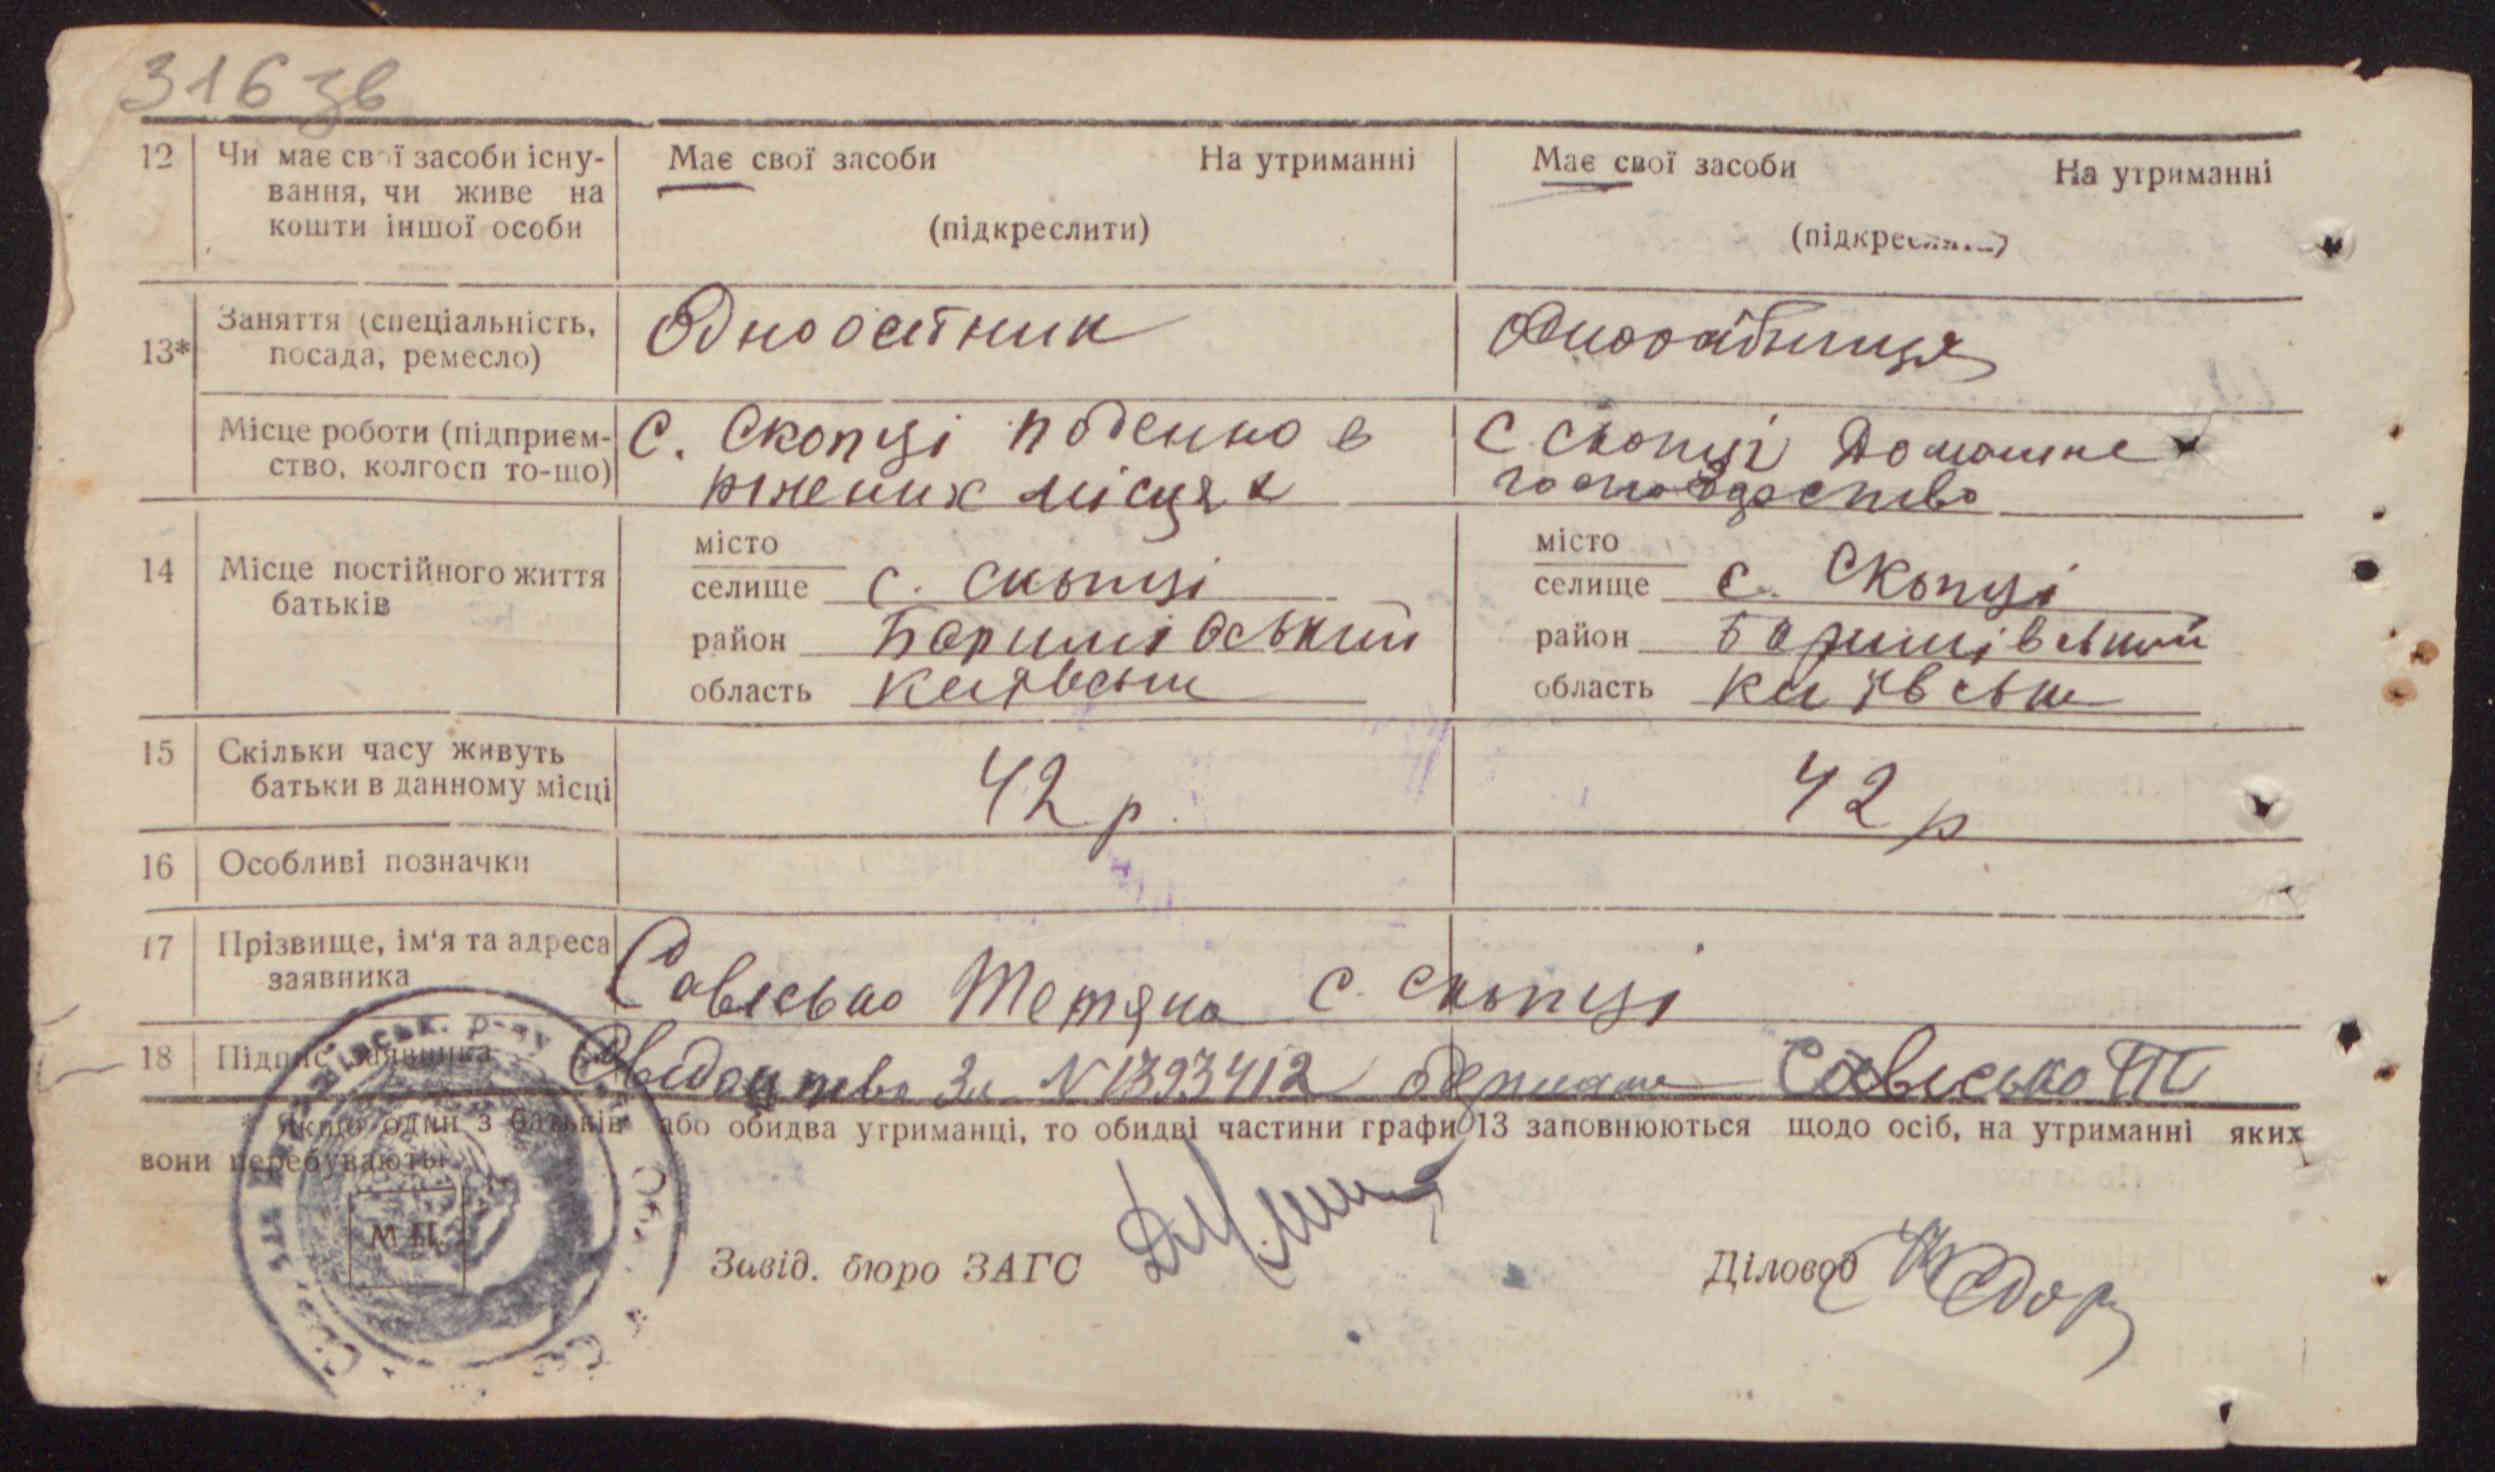 316 зв
12 Чи має свої засоби існу-
вання, чи живе на
кошти іншої особи
Має свої засоби На утриманні
(підкреслити)
Має свої засоби На утриманні
(підкреслити)
13* Заняття (спеціальність,
посада, ремесло)
Одноосітник
Місце роботи (підприєм-
ство, колгосп то-що)
С. Скопці поденно в
місцях
С. Скопці Домашнє
господарство
14 Місце постійного життя
батьків
місто
селище с. Скопці
район Баришівський
область Київськ
місто
селище с. Скопці
район Баришівський
область Київськ
15 Скільки часу живуть
батьки в данному місці
42 р.
42 р
16 Особливі позначки
17 Прізвище, ім'я та адреса
заявника
Тетяна с. Скопці
18 Підпис заявника
За N 1393412
* Якщо один з батьків або обидва утриманці, то обидві частини графи 13 заповнюються щодо осіб, на утриманні яких
вони перебувають.
М П
Завід. бюро ЗАГС
Діловод